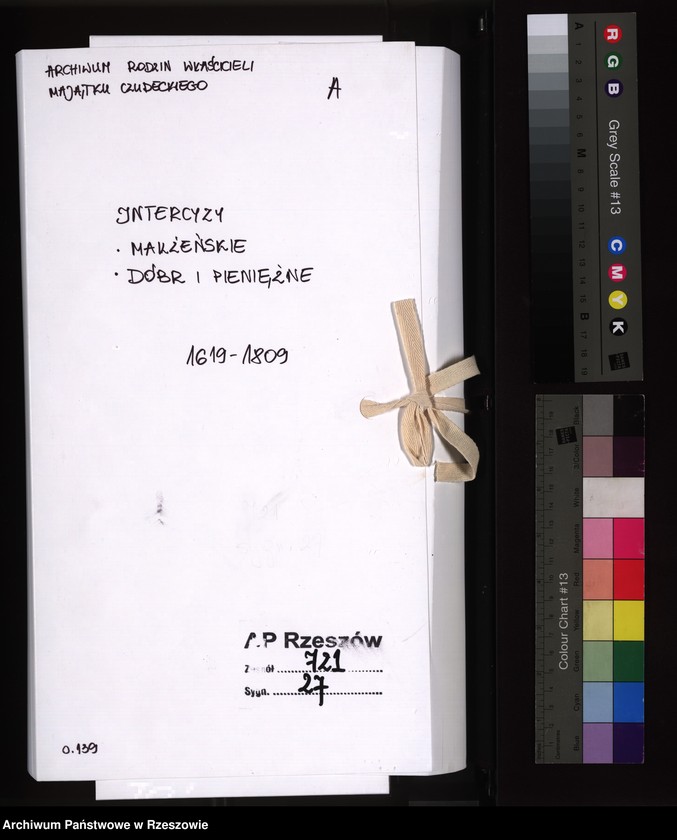 ARCHIWUM RODZIN WŁAŚCICIELI
MAJĄTKU CZUDECKIEGO
A
INTERCYZY
· MAŁŻEŃSKIE
· DÓBR I PIENIĘŻNE
1619-1809
AP Rzeszów
Zespół 721
Sygn. 27
0.139
R
G
B
Grey Scale #13
C
M
Y
K
A
1
2
3
4
5
6
M
8
9
10
11
12
13
14
15
B
17
18
19
Colour Chart #13
Black
3/Color
White
Magenta
Red
Yellow
Green
Cyan
Blue
Archiwum Państwowe w Rzeszowie